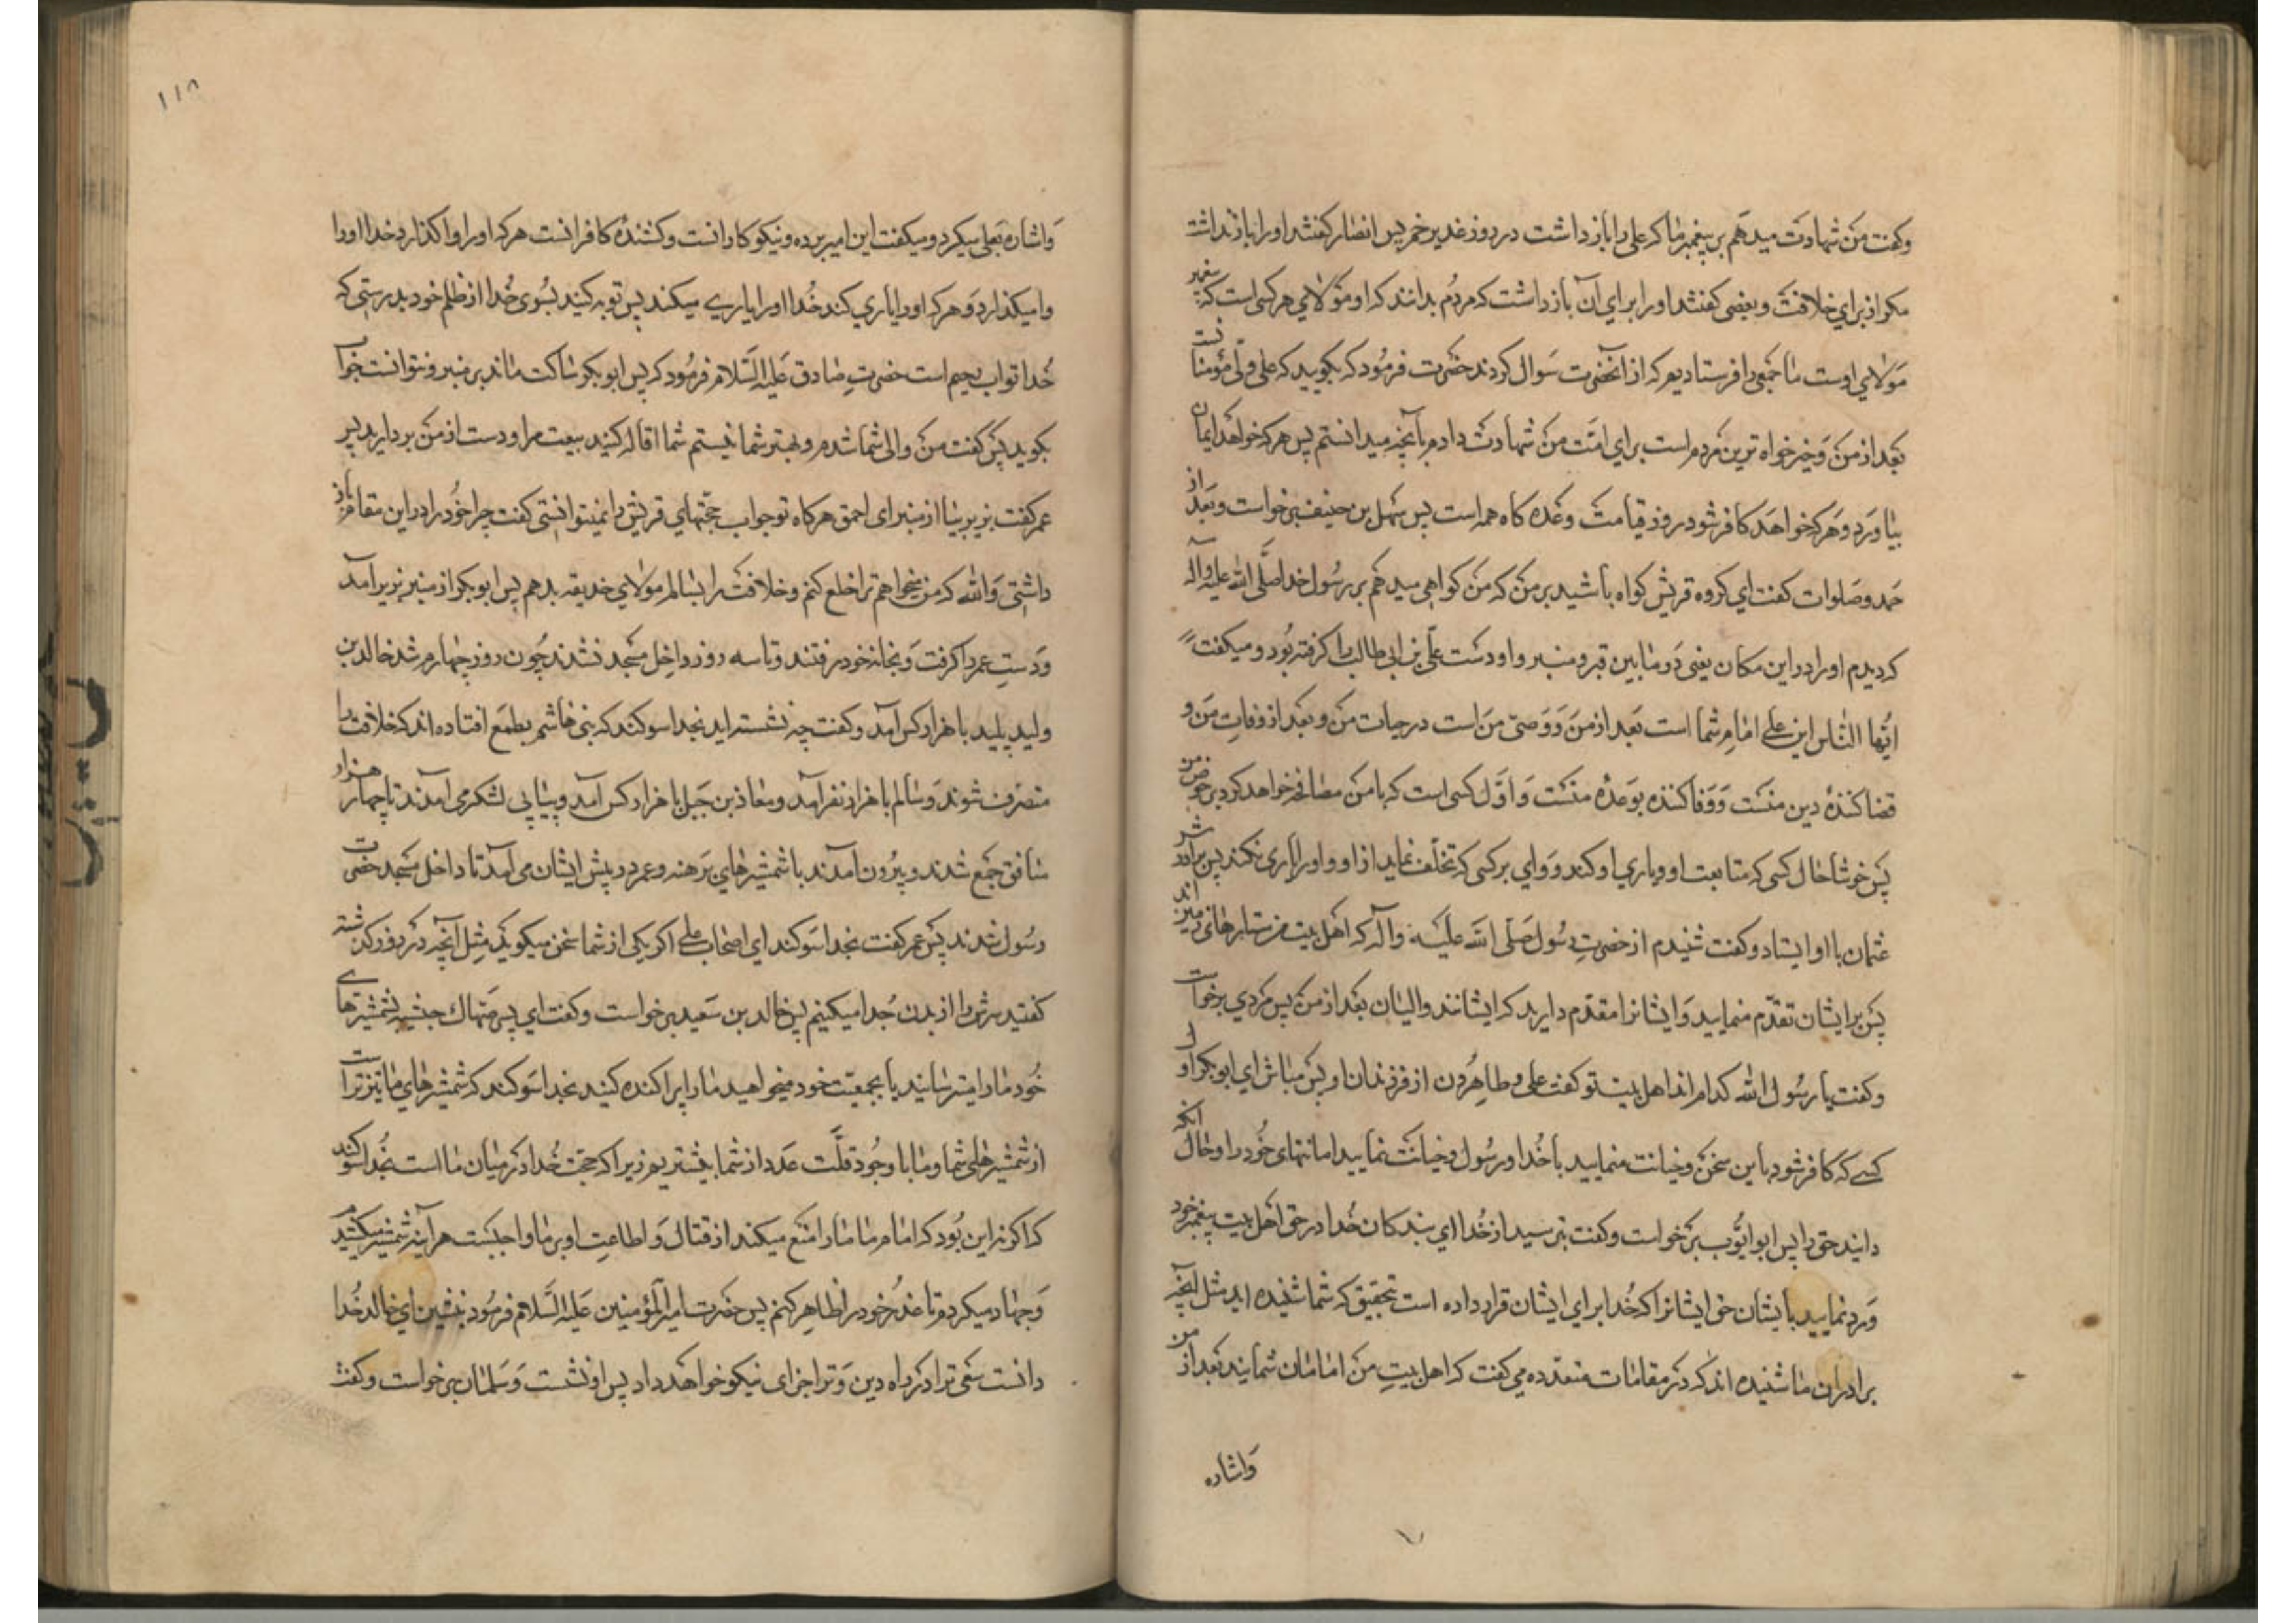 وکفت من شهادت میدهم بر پیغمبر ما که علی را بازداشت در روز غدیر خم پس انصار کفتند او را باز نداشت
مکر از برای خلافت و بعضی کفتند او را برای آن بازداشت که مردم بدانند که او مولای هر کسی است که پیغمبر
مولای اوست ما جمعی را فرستادیم که از آنحضرت سوال کردند حضرت فرمود که بکویید که علی ولی مؤمنانست
بعد از من و خیرخواه ترین مردم است برای امت من شهادت دادم بآنچه میدانستم پس هر که خواهد ایمان
بیاورد و هر که خواهد کافر شود روز قیامت وعده کاه همه است پس سهل بن حنیف برخواست و بعد از
حمد و صلوات کفت ای کروه قریش کواه باشید بر من که من کواهی میدهم بر رسول خدا صلی الله علیه وآله
که دیدم او را در این مکان یعنی در مابین قبر و منبر و او دست علی بن ابی طالب را کرفته بود و میکفت
ایها الناس این علی امام شما است بعد از من و وصی من است در حیات من و بعد از وفات من و
قضا کننده دین منست و وفا کننده بوعده منست و اول کسی است که با من مصافحه خواهد کرد بر حوض من
پس خوشا حال کسی که متابعت او و یاری او کند و وای بر کسی که تخلف نماید از او و او را یاری نکند پس برادرش
عثمان با او ایستاد و کفت شنیدم از حضرت رسول صلی الله علیه وآله که اهل بیت من ستارهای زمین اند
پس بر ایشان تقدم منمایید و ایشانرا مقدم دارید که ایشانند والیان بعد از من پس مردی برخواست
وکفت یا رسول الله کدام اند اهل بیت تو کفت علی و طاهرون از فرزندان او پس مباش ای ابوبکر اول
کسی که کافر شود باین سخن و خیانت منمایید با خدا و رسول و خیانت نمایید امانتهای خود را و حال آنکه
دانید حق را پس ابو ایوب برخواست وکفت بترسید از خدا ای بندکان خدا در حق اهل بیت پیغمبر خود
و رد نمایید بایشان حق ایشانرا که خدا برای ایشان قرار داده است تحقیق که شما شنیده اید مثل آنچه
برادران ما شنیده اند که در مقامات متعدده می کفت که اهل بیت من امامان شمایند بعد از من
واشاره
١١٨
واشاره بعلی میکرد و میکفت این امیر برده و نیکوکارانست و کشنده کافرانست هر که او را واکذارد خدا او را
وامیکذارد و هر که او را یاری کند خدا او را یاری میکند پس توبه کنید بسوی خدا از ظلم خود بدرستی که
خدا تواب رحیم است حضرت صادق علیه السلام فرمود که پس ابوبکر ساکت ماند بر منبر و نتوانست جواب
بکوید پس کفت من والی شما شدم و بهتر شما نیستم شما اقاله کنید بیعت مرا و دست از من بردارید پس
عمر کفت بزیر بیا از منبر ای احمق هرکاه تو جواب حجتهای قریش را نمیتوانستی کفت چرا خود را در این مقام باز
داشتی والله که من میخواهم ترا خلع کنم و خلافت را بسالم مولای حذیقه بدهم پس ابوبکر از منبر بزیر آمد
و دست عمر را کرفت و بخانه خود رفتند و تا سه روز داخل مسجد نشدند چون روز چهارم شد خالد بن
ولید پلید با هزار کس آمد و کفت چه نشسته اید بخدا سوکند که بنی هاشم بطمع افتاده اند که خلافت را
متصرف شوند و سالم با هزار نفر آمد و معاذ بن جبل با هزار کس آمد و پیاپی لشکر می آمدند تا چهار هزار
منافق جمع شدند و بیرون آمدند با شمشیرهای برهنه و عمر در پیش ایشان می آمد تا داخل مسجد حضرت
رسول شدند پس عمر کفت بخدا سوکند ای اصحاب علی اکر یکی از شما سخن میکوید مثل آنچه در روز کذشته
کفتید سرش را از بدن جدا میکنیم پس خالد بن سعید برخواست وکفت ای پسر صهاک حبشیه بشمشیرهای
خود ما را میترسانید یا بجمعیت خود میخواهید ما را پراکنده کنید بخدا سوکند که شمشیرهای ما تیزتر است
از شمشیرهای شما و ما با وجود قلت عدد از شما بیشتریم زیرا که حجت خدا در میان ما است بخدا سوکند
که اکر نه این بود که امام ما ما را منع میکند از قتال و اطاعت او بر ما واجبست هرآینه شمشیر میکشیدم
و جهاد میکردم تا عذر خود را ظاهر کنم پس حضرت امیر المؤمنین علیه السلام فرمود بنشین ای خالد خدا
دانست سعی ترا در راه دین و ترا جزای نیکو خواهد داد پس او نشست و سلمان برخواست وکفت